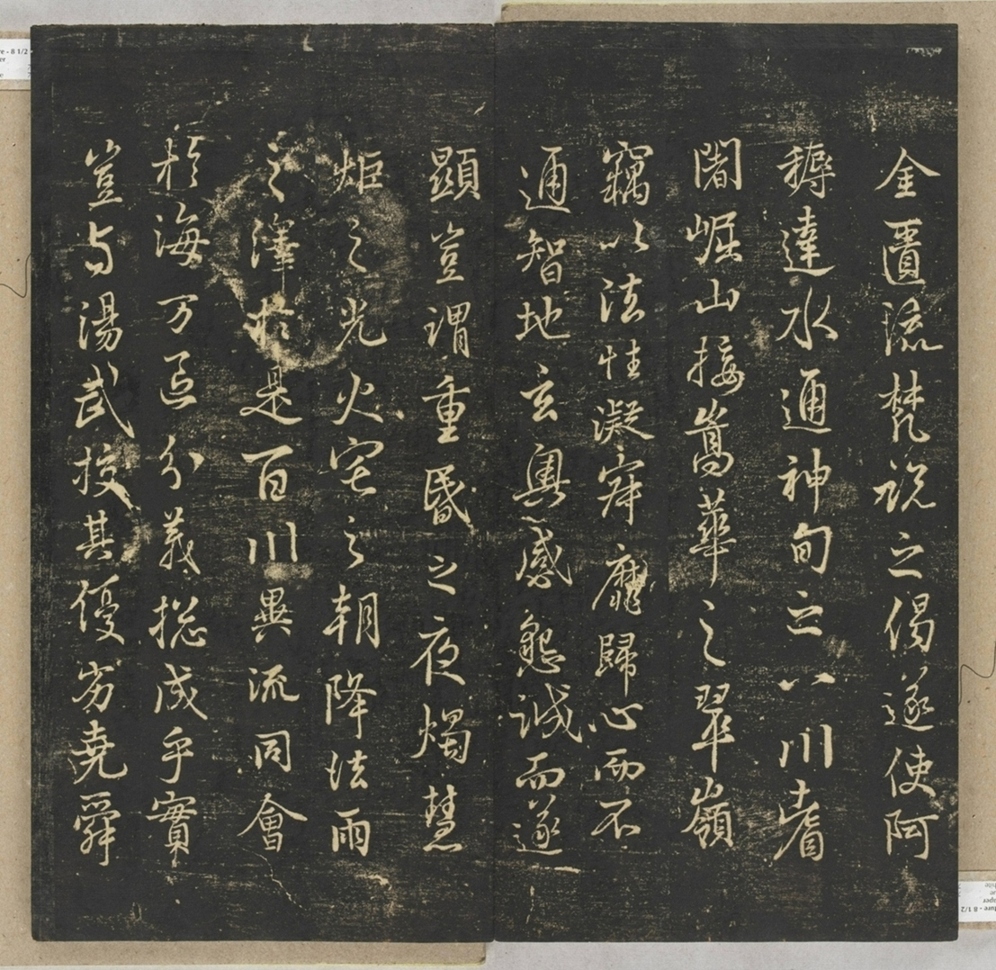 金匱流梵說之偈遂使阿
耨達水通神甸之八川耆
闍崛山接嵩華之翠嶺
竊以法性凝寂靡歸心而不
通智地玄奧感懇誠而遂
顯豈謂重昏之夜燭慧
炬之光火宅之朝降法雨
之澤於是百川異流同會
於海万區分義揔成乎實
豈与湯武校其優劣堯舜